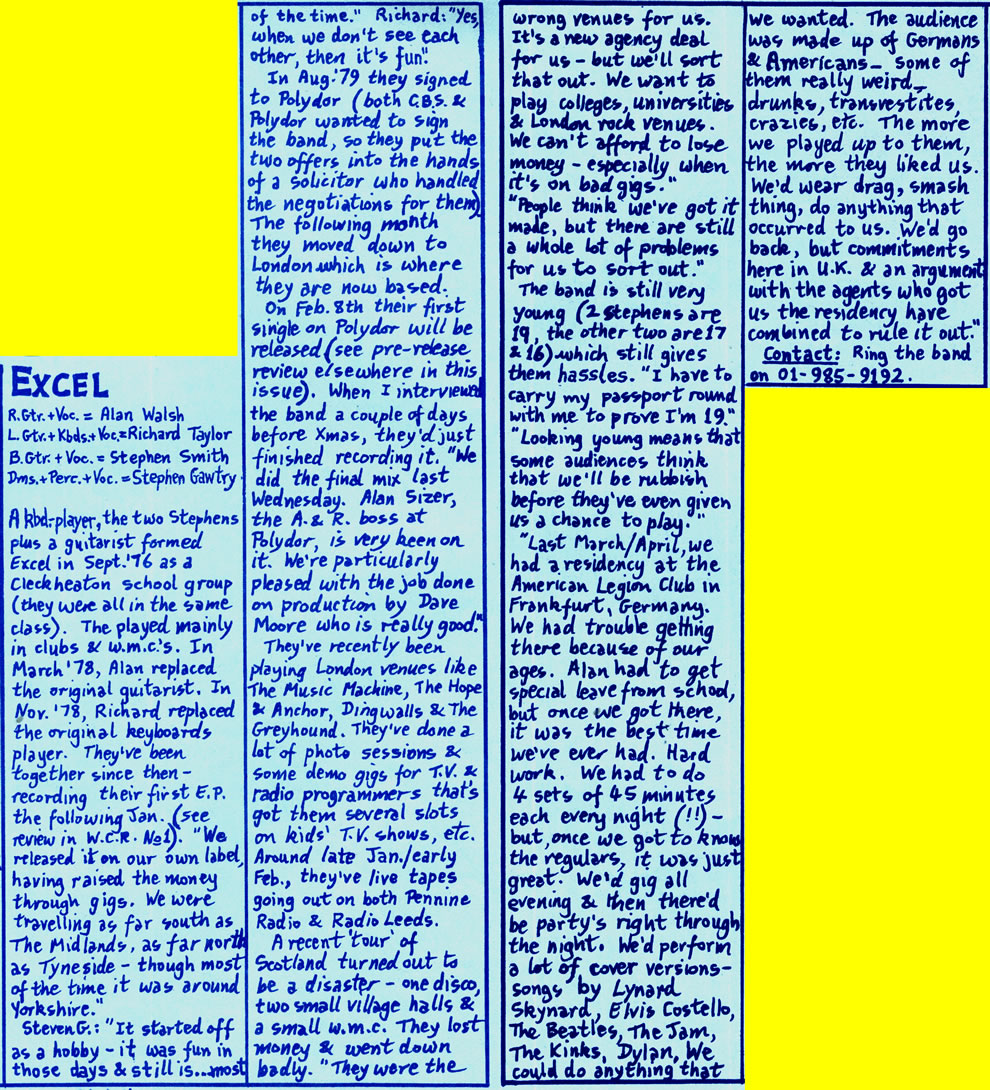 EXCEL
R.Gtr.+Voc. = Alan Walsh
L.Gtr.+Kbds.+Voc.=Richard Taylor
B.Gtr.+Voc. = Stephen Smith
Dms.+Perc.+Voc.=Stephen Gawtry
A Kbd-player, the two Stephens
plus a guitarist formed
Excel in Sept.'76 as a
Cleckheaton school group
(they were all in the same
class). The played mainly
in clubs & w.m.c.'s. In
March '78, Alan replaced
the original guitarist. In
Nov. '78, Richard replaced
the original keyboards
player. They've been
together since then -
recording their first E.P.
the following Jan. (see
review in W.C.R. No1). "We
released it on our own label,
having raised the money
through gigs. We were
travelling as far south as
The Midlands, as far north
as Tyneside - though most
of the time it was around
Yorkshire."
Steven G.: "It started off
as a hobby - it was fun in
those days & still is...most
of the time." Richard: "Yes,
when we don't see each
other, then it's fun."
In Aug.'79 they signed
to Polydor (both C.B.S. &
Polydor wanted to sign
the band, so they put the
two offers into the hands
of a solicitor who handled
the negotiations for them)
The following month
they moved down to
London which is where
they are now based.
On Feb. 8th their first
single on Polydor will be
released (see pre-release
review elsewhere in this
issue). When I interviewed
the band a couple of days
before Xmas, they'd just
finished recording it. "We
did the final mix last
Wednesday. Alan Sizer,
the A.& R. boss at
Polydor, is very keen on
it. We're particularly
pleased with the job done
on production by Dave
Moore who is really good."
They've recently been
playing London venues like
The Music Machine, The Hope
& Anchor, Dingwalls & The
Greyhound. They've done a
lot of photo sessions &
some demo gigs for T.V. &
radio programmers that's
got them several slots
on kids' T.V. shows, etc.
Around late Jan./early
Feb., they've live tapes
going out on both Pennine
Radio & Radio Leeds.
A recent 'tour' of
Scotland turned out to
be a disaster - one disco,
two small village halls &
a small w.m.c. They lost
money & went down
badly. "They were the
wrong venues for us.
It's a new agency deal
for us - but we'll sort
that out. We want to
play colleges, universities
& London rock venues.
We can't afford to lose
money - especially when
it's on bad gigs."
"People think we've got it
made, but there are still
a whole lot of problems
for us to sort out."
The band is still very
young (2 Stephens are
19, the other two are 17
& 16) which still gives
them hassles. "I have to
carry my passport round
with me to prove I'm 19."
"Looking young means that
some audiences think
that we'll be rubbish
before they've even given
us a chance to play."
"Last March/April, we
had a residency at the
American Legion Club in
Frankfurt, Germany.
We had trouble getting
there because of our
ages. Alan had to get
special leave from school,
but once we got there,
it was the best time
we've ever had. Hard
work. We had to do
4 sets of 45 minutes
each every night (!!) -
but, once we got to know
the regulars, it was just
great. We'd gig all
evening & then there'd
be party's right through
the night. We'd perform
a lot of cover versions-
songs by Lynard
Skynard, Elvis Costello,
The Beatles, The Jam,
The Kinks, Dylan, We
could do anything that
we wanted. The audience
was made up of Germans
& Americans - some of
them really weird -
drunks, transvestites,
crazies, etc. The more
we played up to them,
the more they liked us.
We'd wear drag, smash
thing, do anything that
occurred to us. We'd go
back, but commitments
here in U.K. & an argument
with the agents who got
us the residency have
combined to rule it out."
Contact: Ring the band
on 01-985-9192.